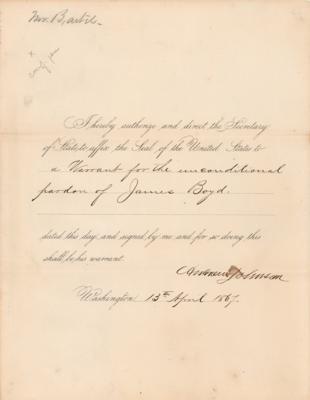 I hereby authorize and direct the Secretary
of State to affix the Seal of the United States to
a Warrant for the unconditional
pardon of James Boyd.
dated this day, and signed by me and for so doing this
shall be his warrant.
Andrew Johnson
Washington 13th April 1867.